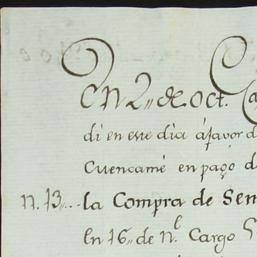 En 2,, de oct. Ca
di en este dia á favor d
Cuencamé en pago d
n. 13... la Compra de Sem
En 16,, de n.l Cargo